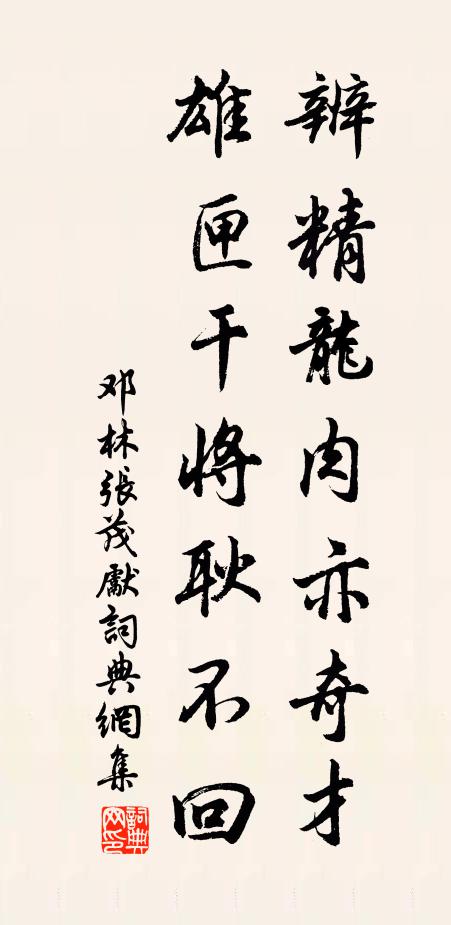 辨精龍肉亦奇才
雄匣干将耿不回
邓林張茂獻詞典網集
詞典網印